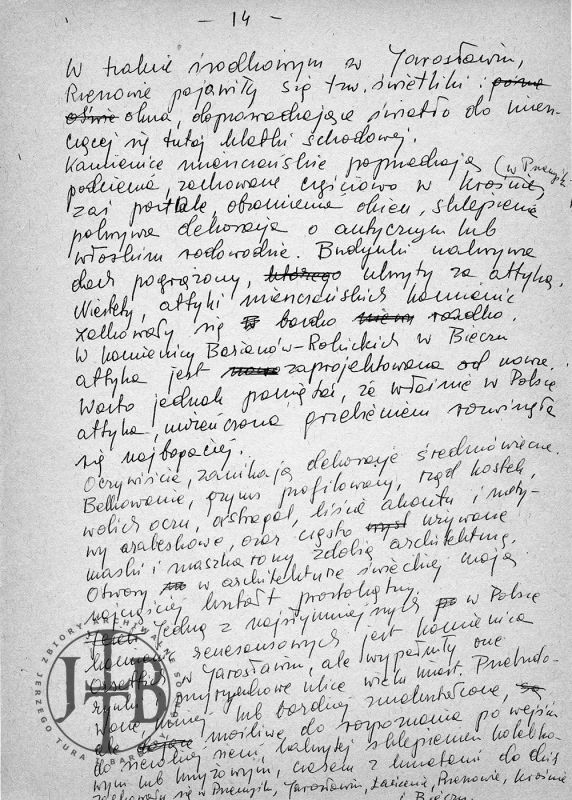 - 14 -
W trakcie środkowym w Jarosławiu,
Rzeszowie pojawiły się tzw. świetliki :
okna, doprowadzające światło do miesz-
czącej się tutaj klatki schodowej.
Kamienice mieszczańskie poprzedzają (w Przemyślu
podcienia, zachowane częściowo w Krośnie,
zaś portale, obramienia okien, sklepienia
pokrywa dekoracja o antycznym lub
włoskim rodowodzie. Budynki nakrywa
dach pogrążony, którego ukryty za attyką.
Niestety, attyki mieszczańskich kamienic
zachowały się bardzo rzadko.
W kamienicy Barianów-Rokickich w Bieczu
attyka jest zaprojektowana od nowa.
Warto jednak pamiętać, że właśnie w Polsce
attyka, zwieńczona grzebieniem rozwinęła
się najbogaciej.
Oczywiście, zanikają dekoracje średniowieczne.
Belkowanie, gzyms profilowany, rząd kostek,
wolich oczu, astragal, liście akantu i moty-
wy arabeskowe, oraz często używane
maski i maszkarony zdobią architekturę.
Otwory w architekturze świeckiej mają
najczęściej kształt prostokątny.
Jedną z najsłynniejszych w Polsce
kamienic renesansowych jest kamienica
Orsettich w Jarosławiu, ale wypełniły one
rynki i przyrynkowe ulice wielu miast. Przebudo-
wane mniej lub bardziej zniekształcone,
ale możliwe do rozpoznania po wejściu
do szerokiej sieni, nakrytej sklepieniem kolebko-
wym lub krzyżowym, czasem z lunetami do dziś
zachowały się w Przemyślu, Jarosławiu, Łańcucie, Rzeszowie, Krośnie
Bieczu.
JERZEGO TURA ZBIORY ARCHIWALNE
JTB